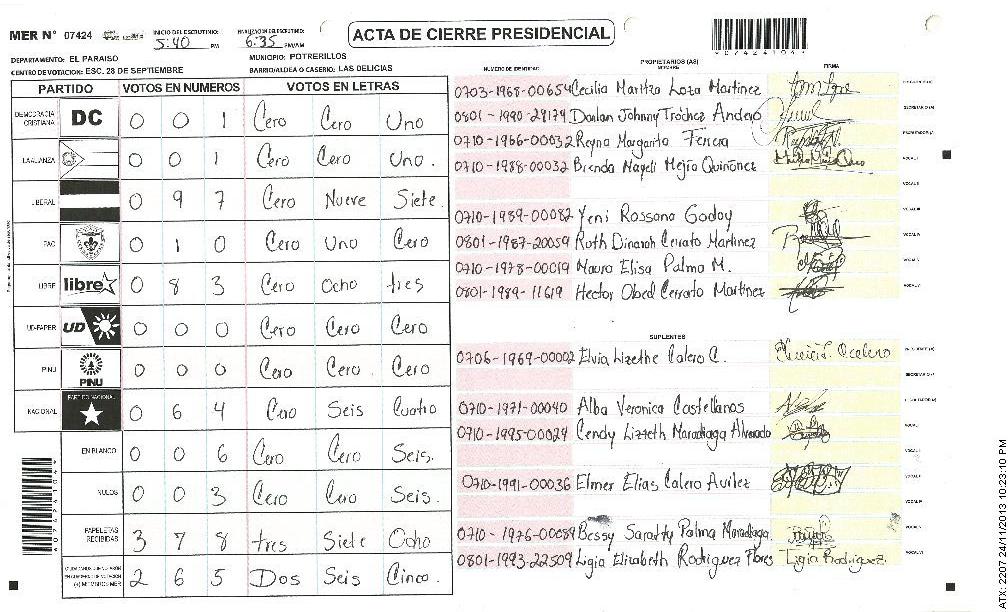 MER N° 07424
INICIO DEL ESCRUTINIO: 5:40 PM
FINALIZACION DEL ESCRUTINIO: 6:35 PM/AM
ACTA DE CIERRE PRESIDENCIAL
DEPARTAMENTO: EL PARAISO
MUNICIPIO: POTRERILLOS
CENTRO DE VOTACION: ESC. 28 DE SEPTIEMBRE
BARRIO/ALDEA O CASERIO: LAS DELICIAS
PARTIDO VOTOS EN NUMEROS VOTOS EN LETRAS
DEMOCRACIA CRISTIANA DC 0 0 1 Cero Cero Uno
LA ALIANZA 0 0 1 Cero Cero Uno.
LIBERAL 0 9 7 Cero Nueve Siete.
PAC 0 1 0 Cero Uno Cero
LIBRE libre 0 8 3 Cero Ocho tres
UD-FAPER UD 0 0 0 Cero Cero Cero
PINU PINU 0 0 0 Cero Cero. Cero
NACIONAL PARTIDO NACIONAL 0 6 4 Cero Seis Cuatro
EN BLANCO 0 0 6 Cero Cero Seis.
NULOS 0 0 3 Cero Cero Seis.
PAPELETAS RECIBIDAS 3 7 8 tres Siete Ocho
2 6 5 Dos Seis Cinco.
NUMERO DE IDENTIDAD PROPIETARIOS (AS) NOMBRE FIRMA
0703-1968-00654 Cecilia Maritza Loza Martinez
0801-1990-24179 Donlan Johnny Tróchez Andejo
0710-1966-00032 Reyna Margarita Ferrera
0710-1988-00032 Brenda Nayeli Mejia Quiñonez
0710-1989-00082 Yeni Rossana Godoy
0801-1987-20059 Ruth Dinorah Cerrato Martinez
0710-1978-00019 Maura Elisa Palma M.
0801-1989-11619 Hector Obed Cerrato Martinez
SUPLENTES
0706-1969-00002 Elvia Lizethe Calero C.
0710-1971-00040 Alba Veronica Castellanos
0710-1995-00024 Cendy Lizzeth Maradiaga Alvarado
0710-1991-00036 Elmer Elias Calero Avilez
0710-1976-00089 Bessy Saratty Palma Maradiaga
0801-1993-22509 Ligia Elizabeth Rodriguez Flores Ligia Rodriguez.
ATX: 2207 24/11/2013 10:23:10 PM